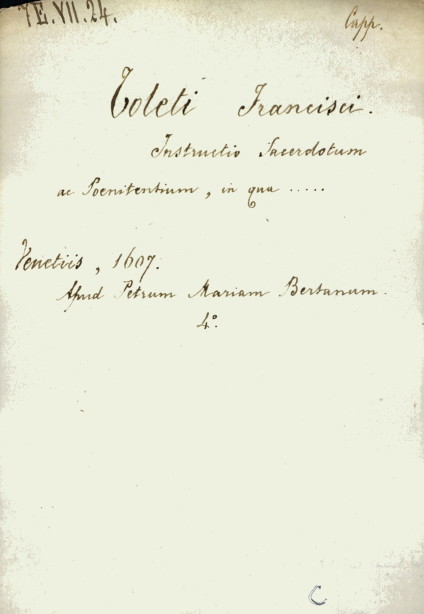 7E.VII.24.
Capp.
Toleti Francisci.
Instructio Sacerdotum
ac Poenitentium, in qua .....
Venetiis, 1607.
Apud Petrum Mariam Bertanum.
4º.
C